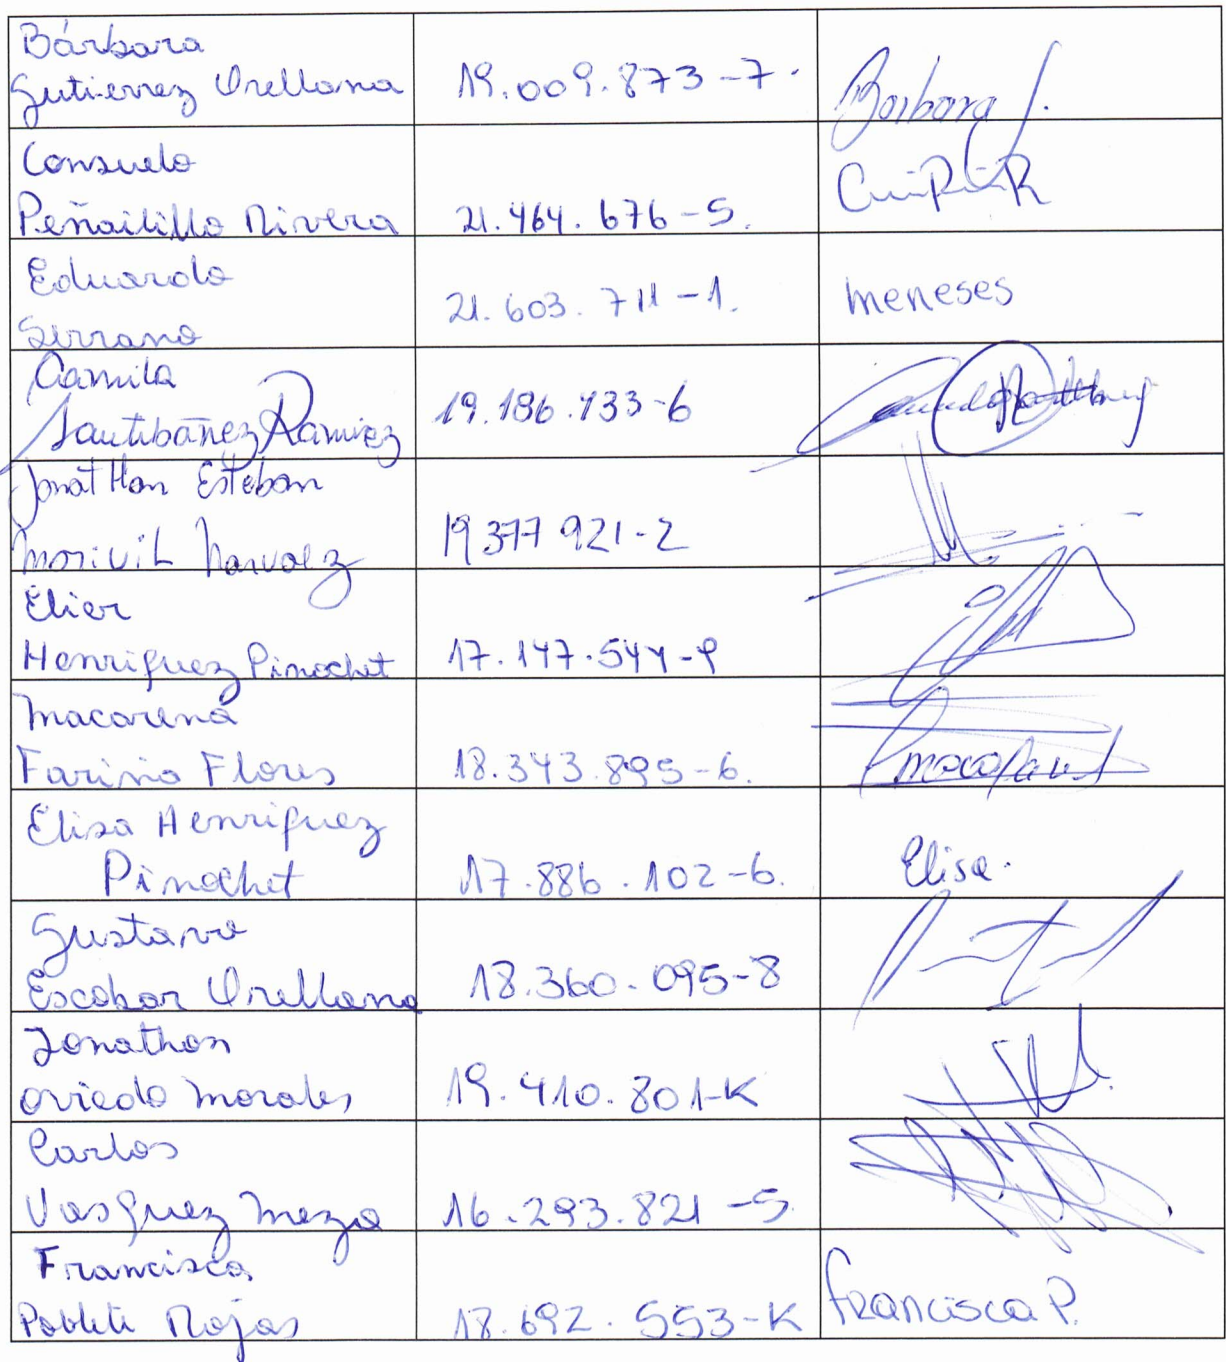 Bárbara
Gutierrez Orellana 19.009.873-7. Barbara J.
Consuelo
Peñailillo Rivera 21.464.676-5.
Eduardo
Serrano 21.603.711-1. meneses
Camila
Santibañez Ramirez 19.186.733-6
Jonatthan Esteban
Morivil Narvaez 19377 921-2
Elier
Henriquez Pinochet 17.147.544-9
Macarena
Farinia Flores 18.343.895-6.
Elisa Henriquez
Pinochet 17.886.102-6. Elisa.
Gustavo
Escobar Orellana 18.360.095-8
Jonathan
Oviedo Morales 19.410.801-K
Carlos
Vasquez Meza 16.293.821-5
Francisca
Poblete Rojas 18.692.553-K Francisca P.